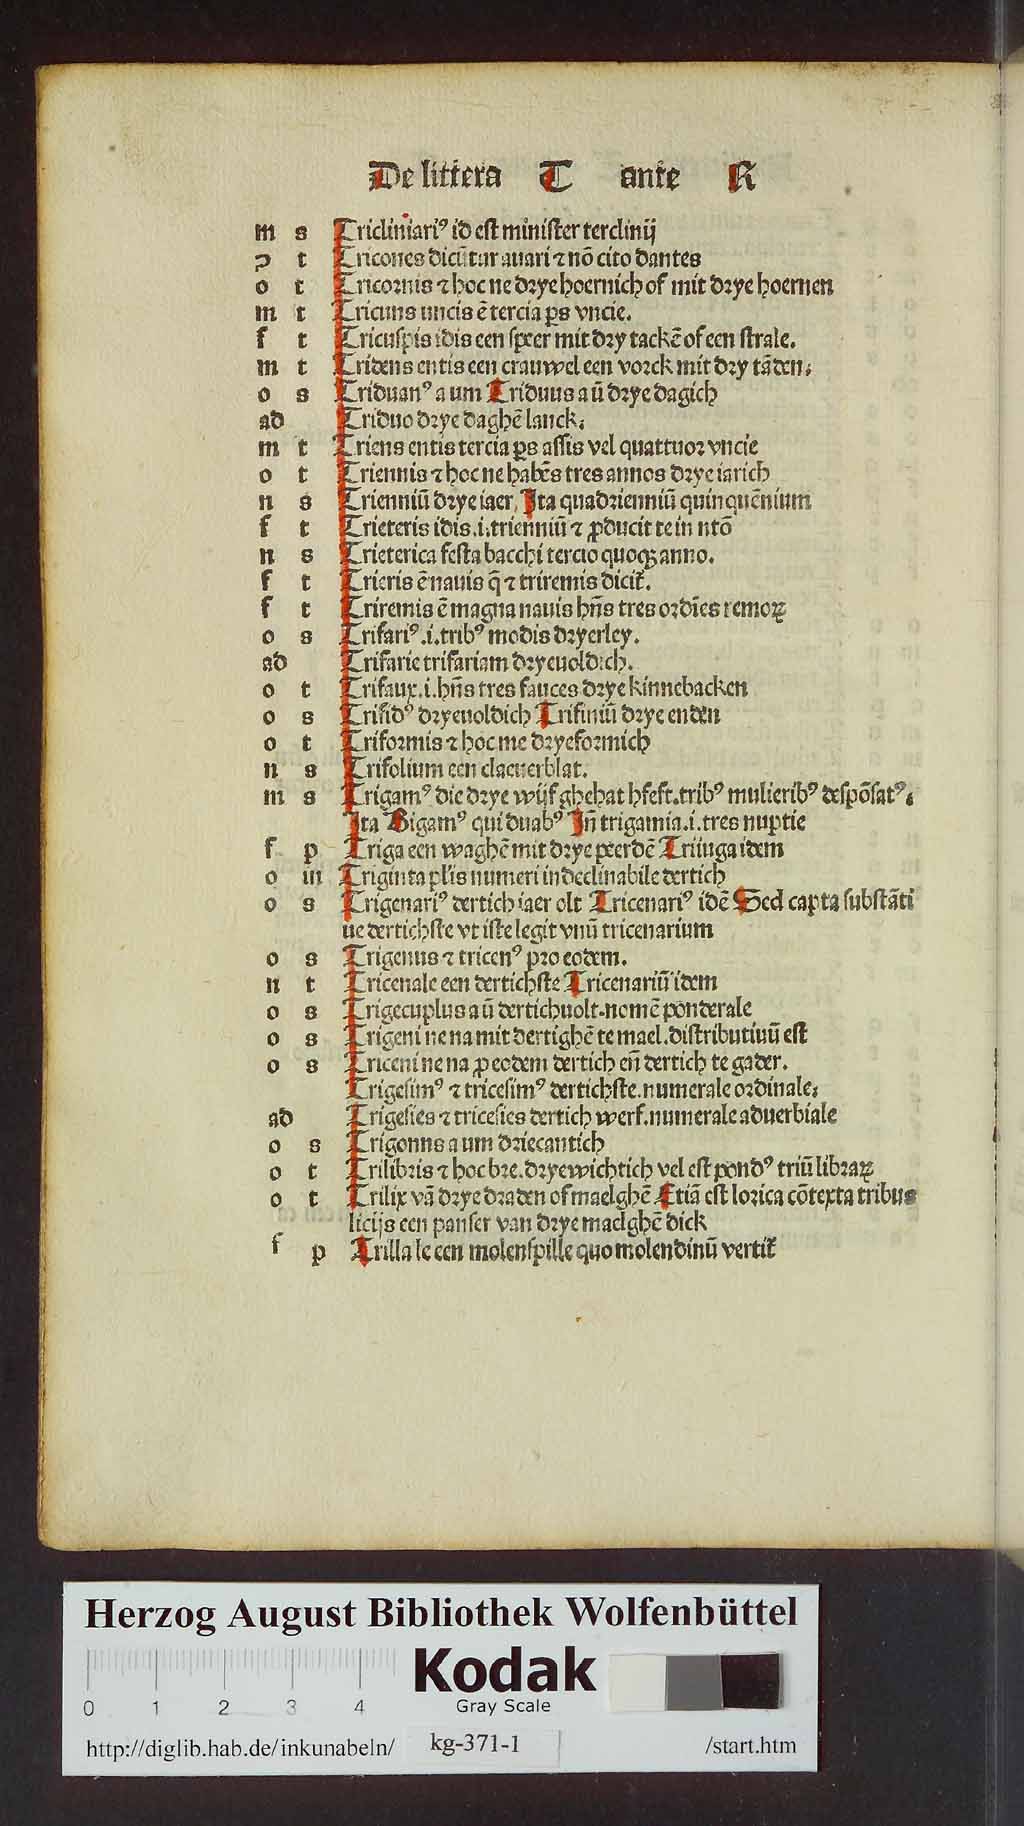 De littera T ante R
m s Tricliniariꝰ id est minister terclinij
ꝯ t Tricones dicūtur auari ⁊ nō cito dantes
o t Tricornis ⁊ hoc ne drye hoernich of mit drye hoernen
m t Tricuns uncis ē tercia ꝑs vncie.
f t Tricuspis idis een speer mit dry tackē of een strale.
m t Tridens entis een crauwel een vorck mit dry tāden.
o s Triduanꝰ a um Triduus a ū drye dagich
ad Triduo drye daghē lanck.
m t Triens entis tercia ꝑs assis vel quattuor vncie
o t Triennis ⁊ hoc ne habēs tres annos drye iarich
n s Trienniū drye iaer. Ita quadrienniū quinquēnium
f t Trieteris idis .i. trienniū ⁊ ꝓducit te in ntō
n s Trieterica festa bacchi tercio quoqꝫ anno.
f t Trieris ē nauis q̄ ⁊ triremis dicit᷑.
f t Triremis ē magna nauis hn̄s tres ordīes remoꝝ
o s Trifariꝰ .i. tribꝰ modis dryerley.
ad Trifarie trifariam dryeuoldich.
o t Trifaux .i. hn̄s tres fauces drye kinnebacken
o s Trifidꝰ dryeuoldich Trifiniū drye enden
o t Triformis ⁊ hoc me dryeformich
n s Trifolium een clauerblat.
m s Trigamꝰ die drye wijf ghehat hfeft. tribꝰ mulieribꝰ despōsatꝰ.
Ita Bigamꝰ qui duabꝰ Jn̄ trigamia .i. tres nuptie
f p Triga een waghē mit drye peerdē Triiuga idem
o in Triginta plis numeri indeclinabile dertich
o s Trigenariꝰ dertich iaer olt Tricenariꝰ idē Sed capta substāti
ue dertichste vt iste legit vnū tricenarium
o s Trigenus ⁊ tricenꝰ pro eodem.
n t Tricenale een dertichste Tricenariū idem
o s Trigecuplus a ū dertichuolt. nomē ponderale
o s Trigeni ne na mit dertighē te mael. distributiuū est
o s Triceni ne na ꝓ eodem dertich en̄ dertich te gader.
Trigesimꝰ ⁊ tricesimꝰ dertichste. numerale ordinale.
ad Trigesies ⁊ tricesies dertich werf. numerale aduerbiale
o s Trigonns a um driecantich
o t Trilibris ⁊ hoc bre. dryewichtich vel est pondꝰ triū libraꝝ
o t Trilix vā drye draden of maelghē Etiā est lorica cōtexta tribus
licijs een panser van drye maelghē dick
f p Trilla le een molenspille quo molendinū vertit᷑
Herzog August Bibliothek Wolfenbüttel
Kodak
Gray Scale
0 1 2 3 4
http://diglib.hab.de/inkunabeln/ kg-371-1 /start.htm